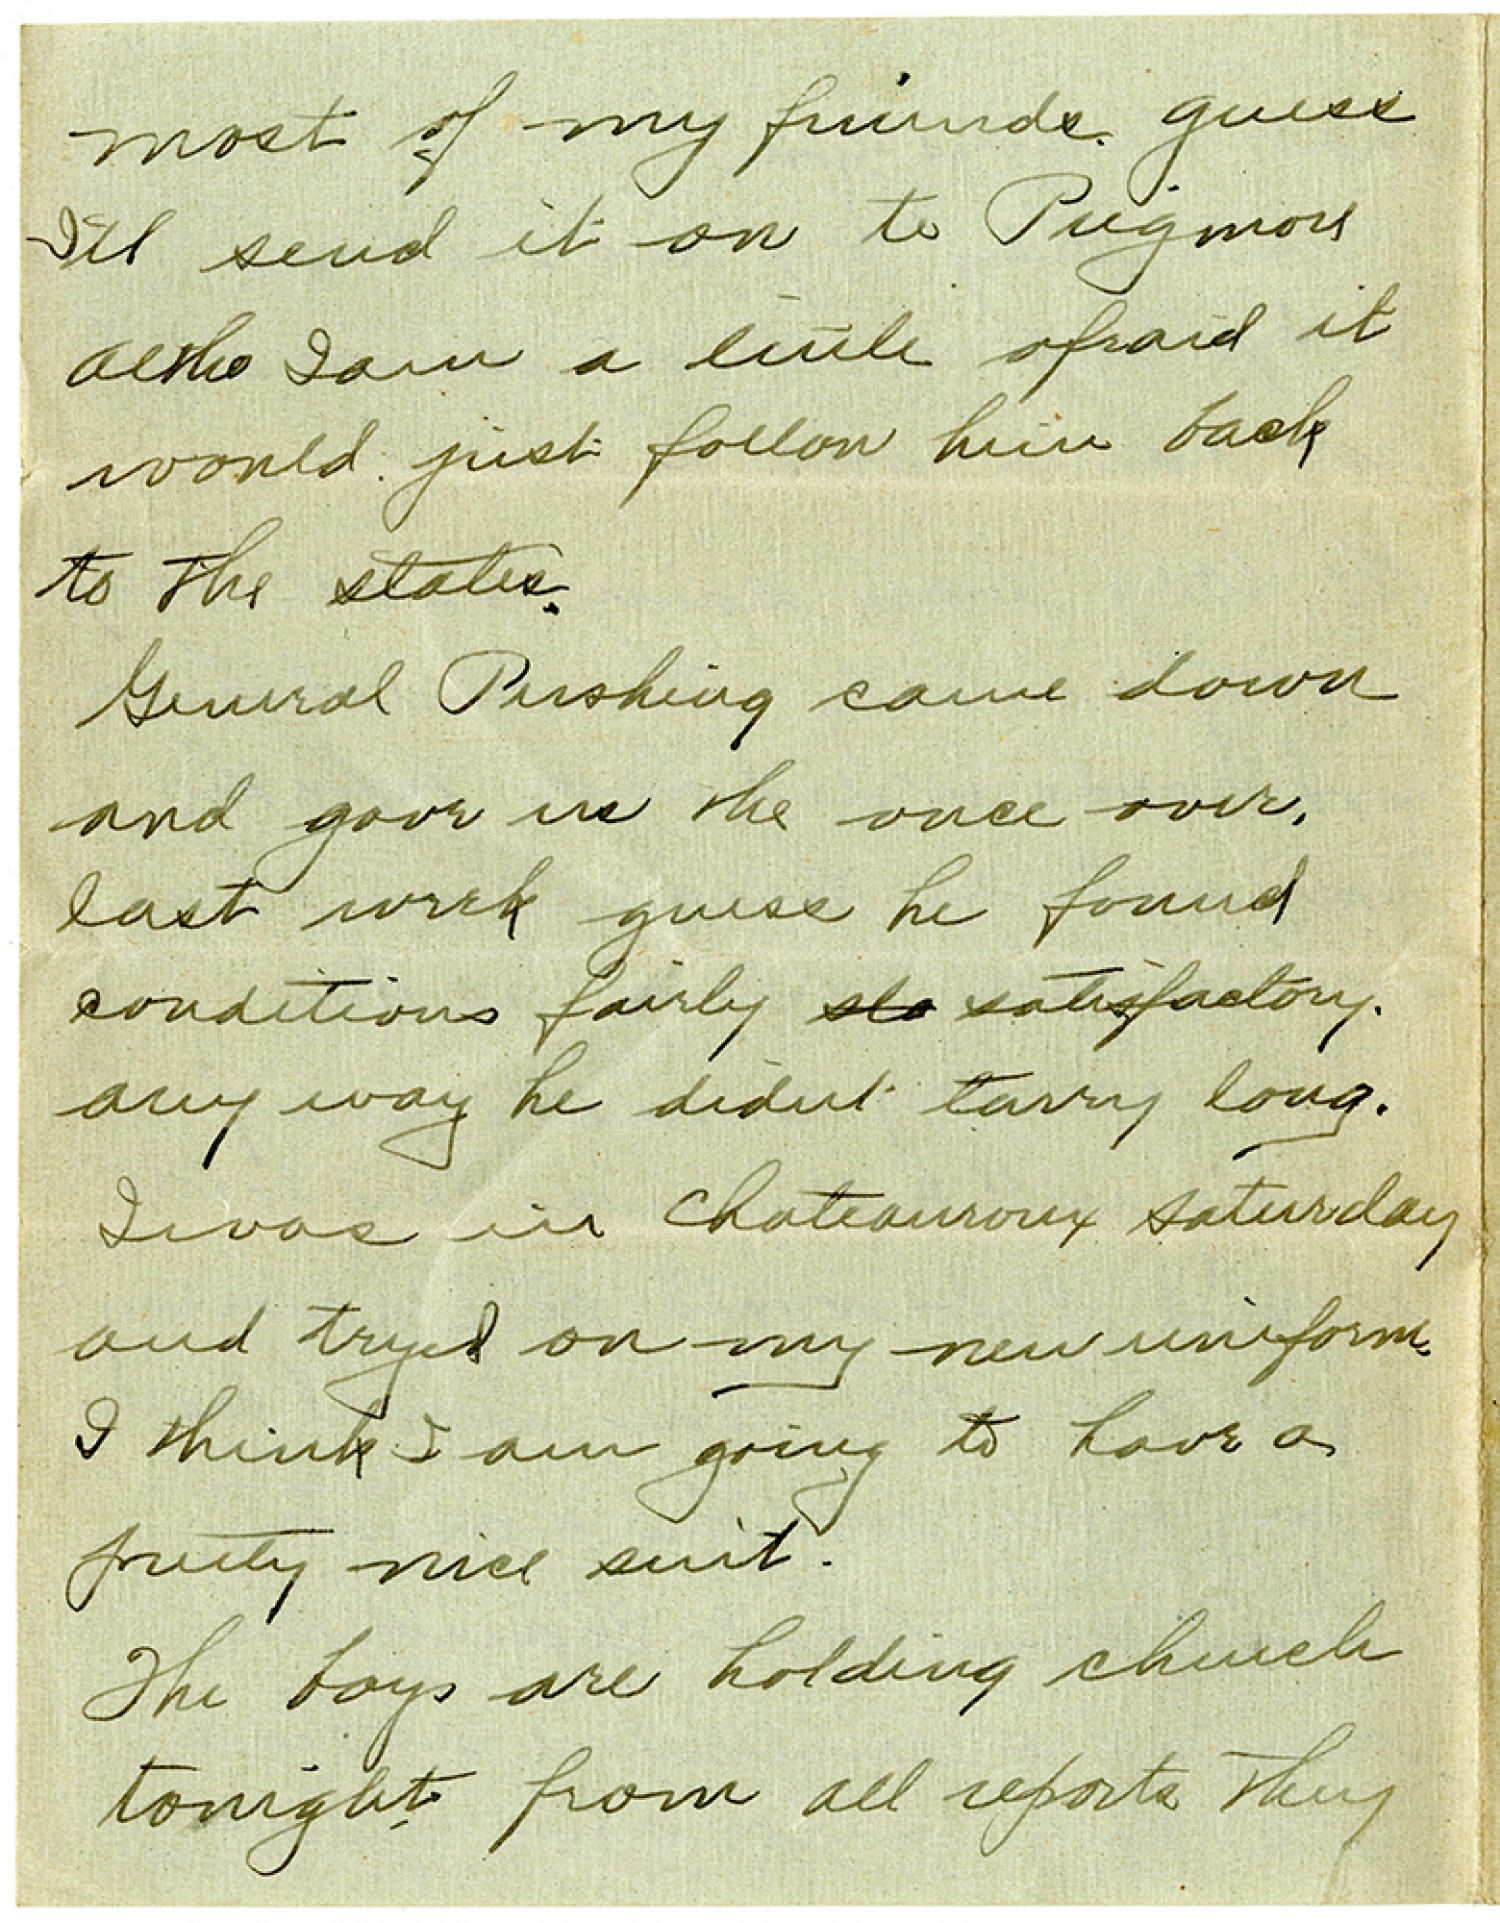 most of my friends. guess
I'll send it on to Pugmore
altho I am a little afraid it
would just follow him back
to the states.
General Pershing came down
and gave us the once over.
last week guess he found
conditions fairly sta satisfactory.
any way he didnt tarry long.
I was in Chateauroux saturday
and tryed on my new uniform.
I think I am going to have a
pretty nice suit.
The boys are holding church
tonight. from all reports they